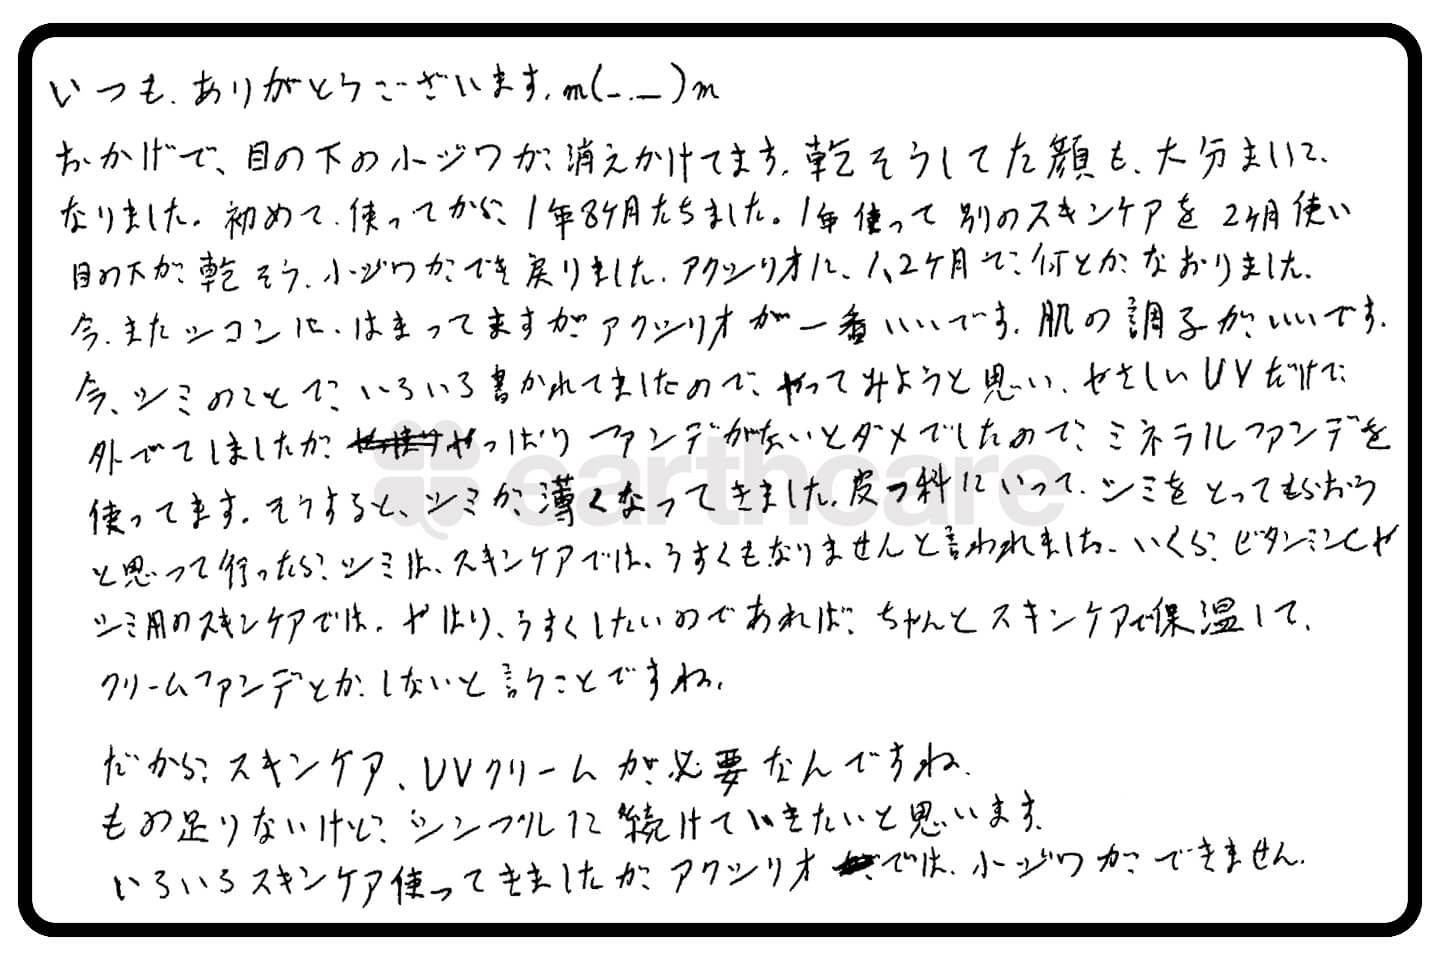 いつも、ありがとうございます。m(-.-)m
おかげで、目の下の小ジワが、消えかけてます。乾そうしてた顔も、大分まいに、
なりました。初めて、使ってから、1年8ケ月たちました。1年使って別のスキンケアを2ヶ月使い
目の下が、乾そう、小ジワができ戻りました。アクシリオに、1、2ケ月で、何とか、なおりました。
今、またシコンに、はまってますがアクシリオが一番いいです。肌の調子が、いいです。
今、シミのことで、いろいろ書かれてましたので、やってみようと思い、やさしいUVだけで、
外でてしましたが、やっぱりファンデがないとダメでしたので、ミネラルファンデを
使ってます。そうすると、シミが、薄くなってきました。皮フ科にいって、シミをとってもらおう
と思って行ったら、シミは、スキンケアでは、うすくもなりませんと言われました。いくら、ビタミンCや
シミ用のスキンケアでは、やはり、うすくしたいのであれば、ちゃんとスキンケアで保温して、
クリームファンデとか、しないと言うことですね。
だから、スキンケア、UVクリームが必要なんですね。
もの足りないけど、シンプルに続けていきたいと思います。
いろいろスキンケア使ってきましたが、アクシリオでは、小ジワが、できません。
earthcare